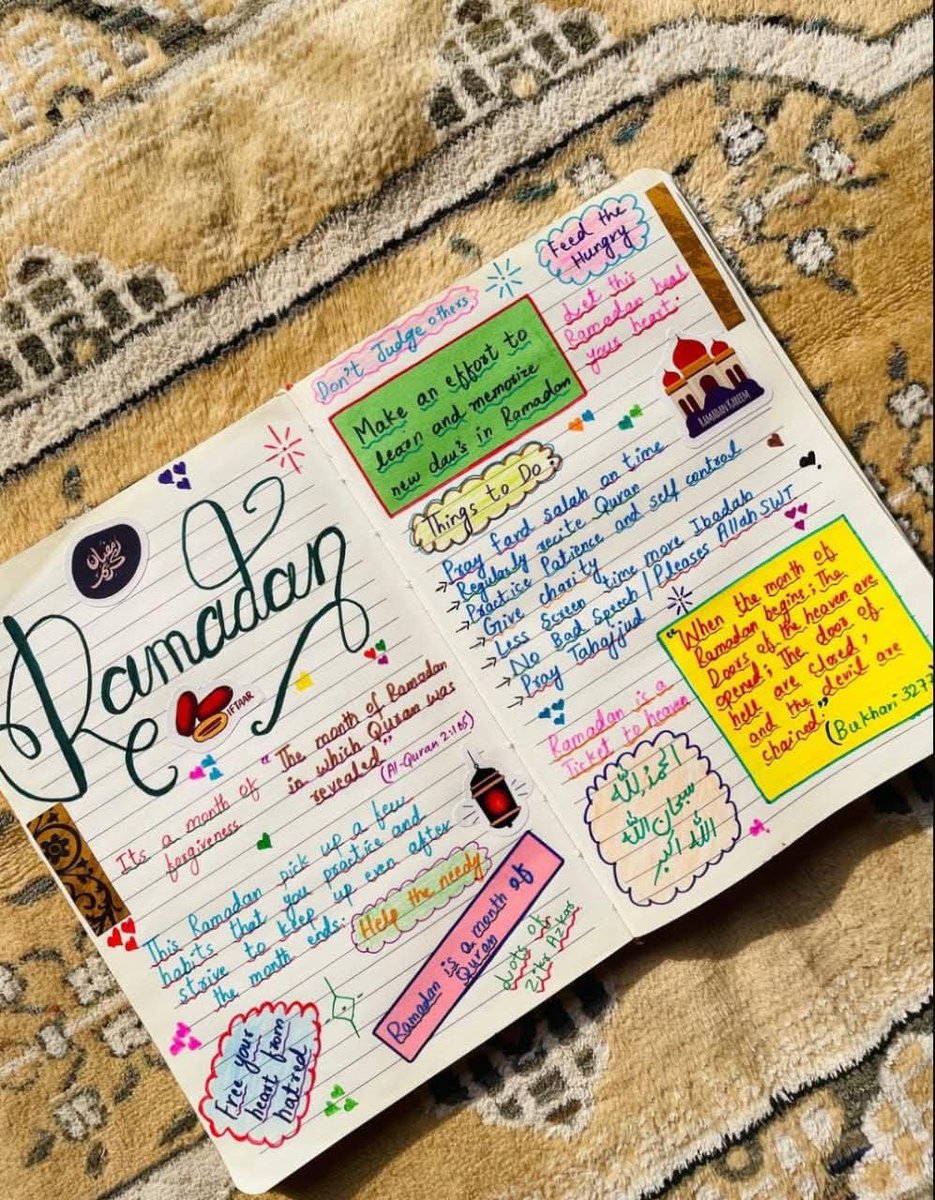 رمضان
كريم
Ramadan
IFTAAR
"The month of Ramadan
in which Quran was
revealed"
(Al-Quran 2:185)
Its a month of
forgiveness
This Ramadan pick up a few
habits that you practice and
strive to keep up even after
the month ends.
Help the needy
Ramadan is a month of
Quran
Lots of
Zikr Azkar
Free your
heart from
hatred
Don't Judge others
Feed the
Hungry
Make an effort to
learn and memorize
new dau's in Ramadan
Let this
Ramadan heal
your heart.
RAMADAN KAREEM
Things to Do
Pray fard salah on time
Regularly recite Quran
Practice Patience and self control
Give charity
Less Screen time more Ibadah
No Bad Speech/Pleases Allah SWT
Pray Tahajjud
"When the month of
Ramadan begins; The
Doors of the heaven are
opened; The door of
hell are closed,
and the devil are
chained."
(Bukhari 3277
Ramadan is a
Ticket to heaven
الحمدلله
سبحان الله
الله اكبر